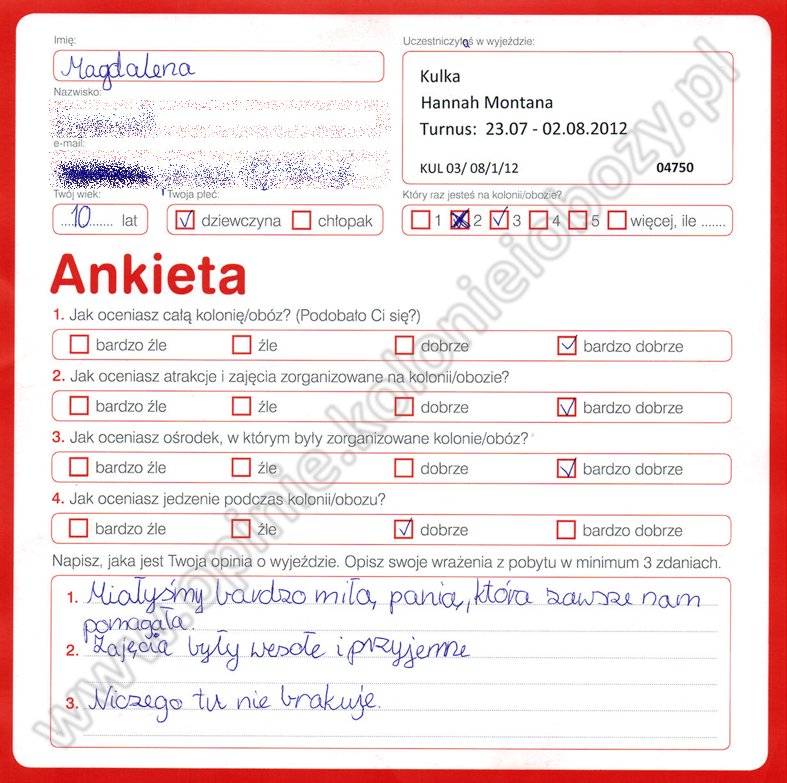 Imię:
Magdalena
Nazwisko:
e-mail:
Twój wiek:
10 lat
Twoja płeć:
dziewczyna chłopak
Uczestniczyłaś w wyjeździe:
Kulka
Hannah Montana
Turnus: 23.07 - 02.08.2012
KUL 03/ 08/1/12 04750
Który raz jesteś na kolonii/obozie?
1 2 3 4 5 więcej, ile .......
Ankieta
1. Jak oceniasz całą kolonię/obóz? (Podobało Ci się?)
bardzo źle źle dobrze bardzo dobrze
2. Jak oceniasz atrakcje i zajęcia zorganizowane na kolonii/obozie?
bardzo źle źle dobrze bardzo dobrze
3. Jak oceniasz ośrodek, w którym byly zorganizowane kolonie/obóz?
bardzo źle źle dobrze bardzo dobrze
4. Jak oceniasz jedzenie podczas kolonii/obozu?
bardzo źle źle dobrze bardzo dobrze
Napisz, jaka jest Twoja opinia o wyjeździe. Opisz swoje wrażenia z pobytu w minimum 3 zdaniach.
1. Miałyśmy bardzo miłą panią, która zawsze nam
pomagała.
2. Zajęcia były wesołe i przyjemne
3. Niczego tu nie brakuje.
www.opinie.kolonieiobozy.pl